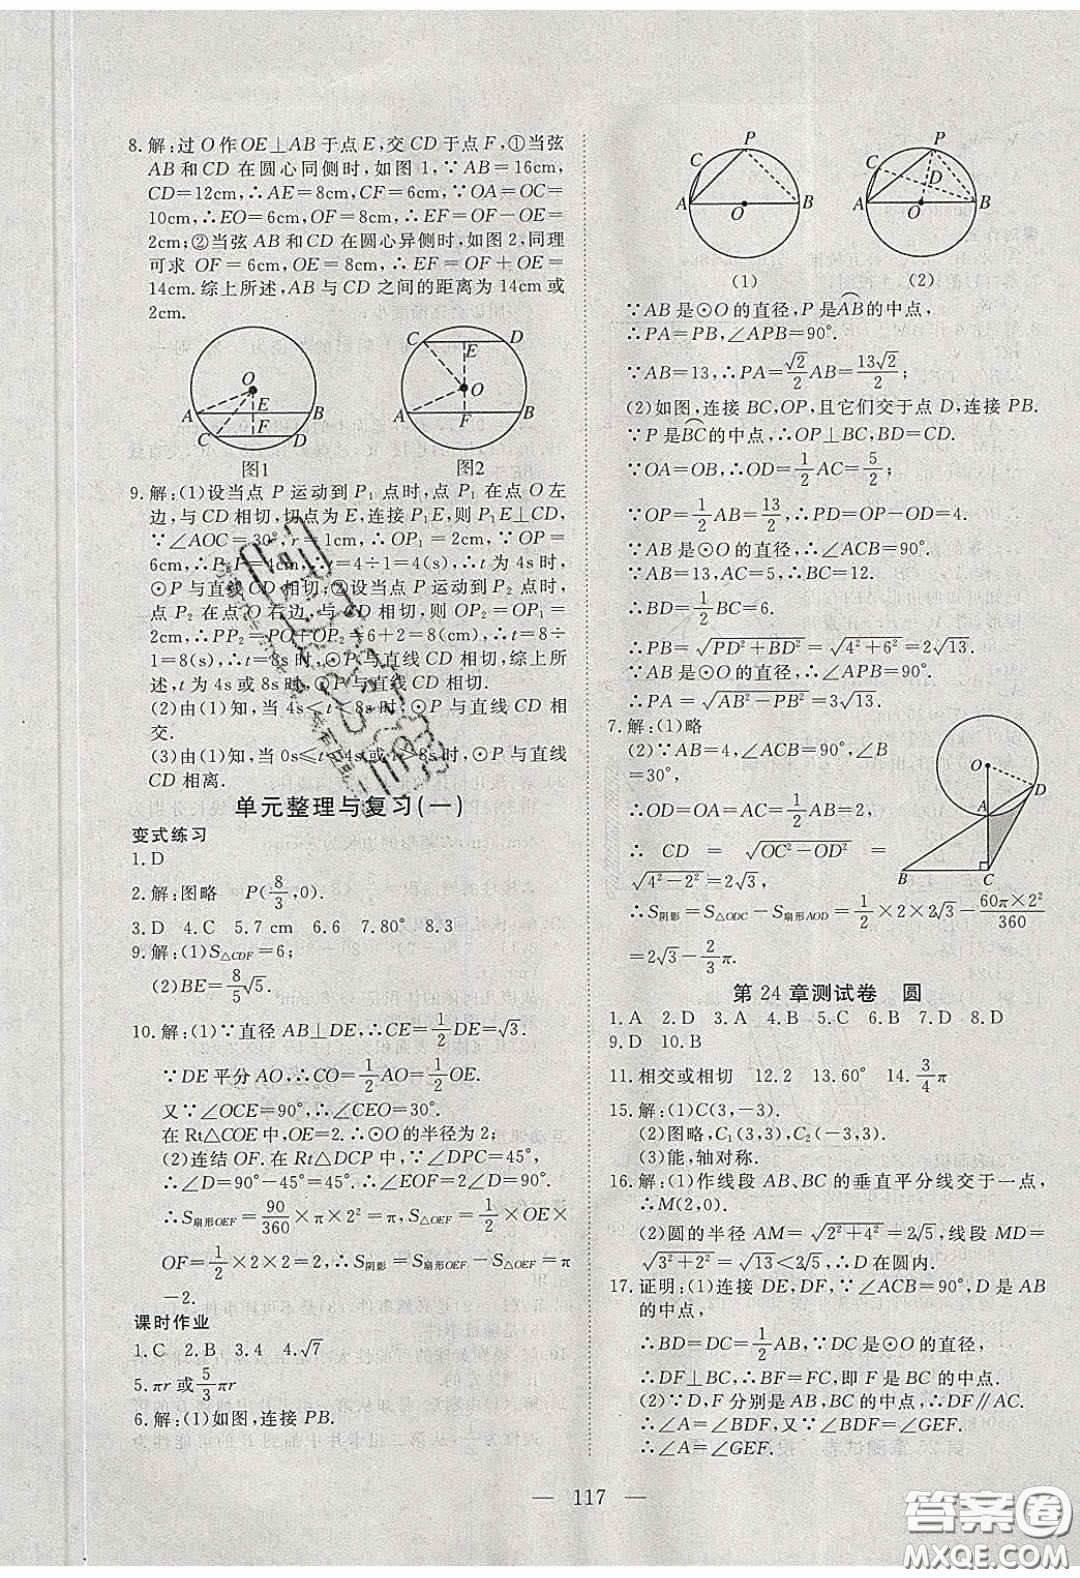 8.解:过O作OE⊥AB于点E,交CD于点F,①当弦
AB和CD在圆心同侧时,如图1,∵AB=16cm,
CD=12cm,∴AE=8cm,CF=6cm,∵OA=OC=
10cm,∴EO=6cm,OF=8cm,∴EF=OF-OE=
2cm;②当弦AB和CD在圆心异侧时,如图2,同理
可求OF=6cm,OE=8cm,∴EF=OF+OE=
14cm.综上所述,AB与CD之间的距离为14cm或
2cm.
O
A E B
C F D
图1
C E D
O
A F B
图2
9.解:(1)设当点P运动到P₁点时,点P₁在点O左
边,与CD相切,切点为E,连接P₁E,则P₁E⊥CD,
∵∠AOC=30°,r=1cm,∴OP₁=2cm,∵OP=
6cm,∴P₁P=4cm,∴t=4÷1=4(s),∴t为4s时,
⊙P与直线CD相切;②设当点P运动到P₂点时,
点P₂在点O右边,与CD相切,则OP₂=OP₁=
2cm,∴PP₂=PO+OP₂=6+2=8cm,∴t=8÷
1=8(s),∴t=8s时,⊙P与直线CD相切,综上所
述,t为4s或8s时,⊙P与直线CD相切.
(2)由(1)知,当4s<t<8s时,⊙P与直线CD相
交.
(3)由(1)知,当0s≤t<4s或t>8s时,⊙P与直线
CD相离.
单元整理与复习(一)
变式练习
1.D
2.解:图略 P(8/3,0).
3.D 4.C 5.7cm 6.6 7.80° 8.3
9.解:(1)S△CDF=6;
(2)BE=8/5√5.
10.解:(1)∵直径AB⊥DE,∴CE=1/2DE=√3.
∵DE平分AO,∴CO=1/2AO=1/2OE.
又∵∠OCE=90°,∴∠CEO=30°.
在Rt△COE中,OE=2.∴⊙O的半径为2;
(2)连结OF.在Rt△DCP中,∵∠DPC=45°,
∴∠D=90°-45°=45°.∴∠EOF=2∠D=90°.
∴S扇形OEF=90/360×π×2²=π,S△OEF=1/2×OE×
OF=1/2×2×2=2.∴S阴影=S扇形OEF-S△OEF=π
-2.
课时作业
1.C 2.B 3.4 4.√7
5.πr或5/3πr
6.解:(1)如图,连接PB.
P
C
A O B
(1)
P
C D
A O B
(2)
∵AB是⊙O的直径,P是AB的中点,
∴PA=PB,∠APB=90°.
∵AB=13,∴PA=√2/2AB=13√2/2;
(2)如图,连接BC,OP,且它们交于点D,连接PB.
∵P是BC的中点,∴OP⊥BC,BD=CD.
∵OA=OB,∴OD=1/2AC=5/2;
∵OP=1/2AB=13/2,∴PD=OP-OD=4.
∵AB是⊙O的直径,∴∠ACB=90°.
∵AB=13,AC=5,∴BC=12.
∴BD=1/2BC=6.
∴PB=√(PD²+BD²)=√(4²+6²)=2√13.
∵AB是⊙O的直径,∴∠APB=90°.
∴PA=√(AB²-PB²)=3√13.
7.解:(1)略
(2)∵AB=4,∠ACB=90°,∠B
=30°,
∴OD=OA=AC=1/2AB=2,
∴CD=√(OC²-OD²)=
√(4²-2²)=2√3,
O
D
A
B C
∴S阴影=S△ODC-S扇形AOD=1/2×2×2√3-60π×2²/360
=2√3-2/3π.
第24章测试卷 圆
1.A 2.D 3.A 4.B 5.C 6.B 7.D 8.D
9.D 10.B
11.相交或相切 12.2 13.60° 14.3/4π
15.解:(1)C(3,-3).
(2)图略,C₁(3,3),C₂(-3,3).
(3)能,轴对称.
16.解:(1)作线段AB、BC的垂直平分线交于一点,
∴M(2,0).
(2)圆的半径AM=√(2²+4²)=2√5,线段MD=
√(3²+2²)=√13<2√5,∴D在圆内.
17.证明:(1)连接DE,DF,∵∠ACB=90°,D是AB
的中点,
∴BD=DC=1/2AB,∵DC是⊙O的直径,
∴DF⊥BC,∴BF=FC,即F是BC的中点.
(2)∵D,F分别是AB,BC的中点,∴DF∥AC,
∴∠A=∠BDF,又∵∠BDF=∠GEF.
∴∠A=∠GEF.
117
答案圈
MXQE.COM